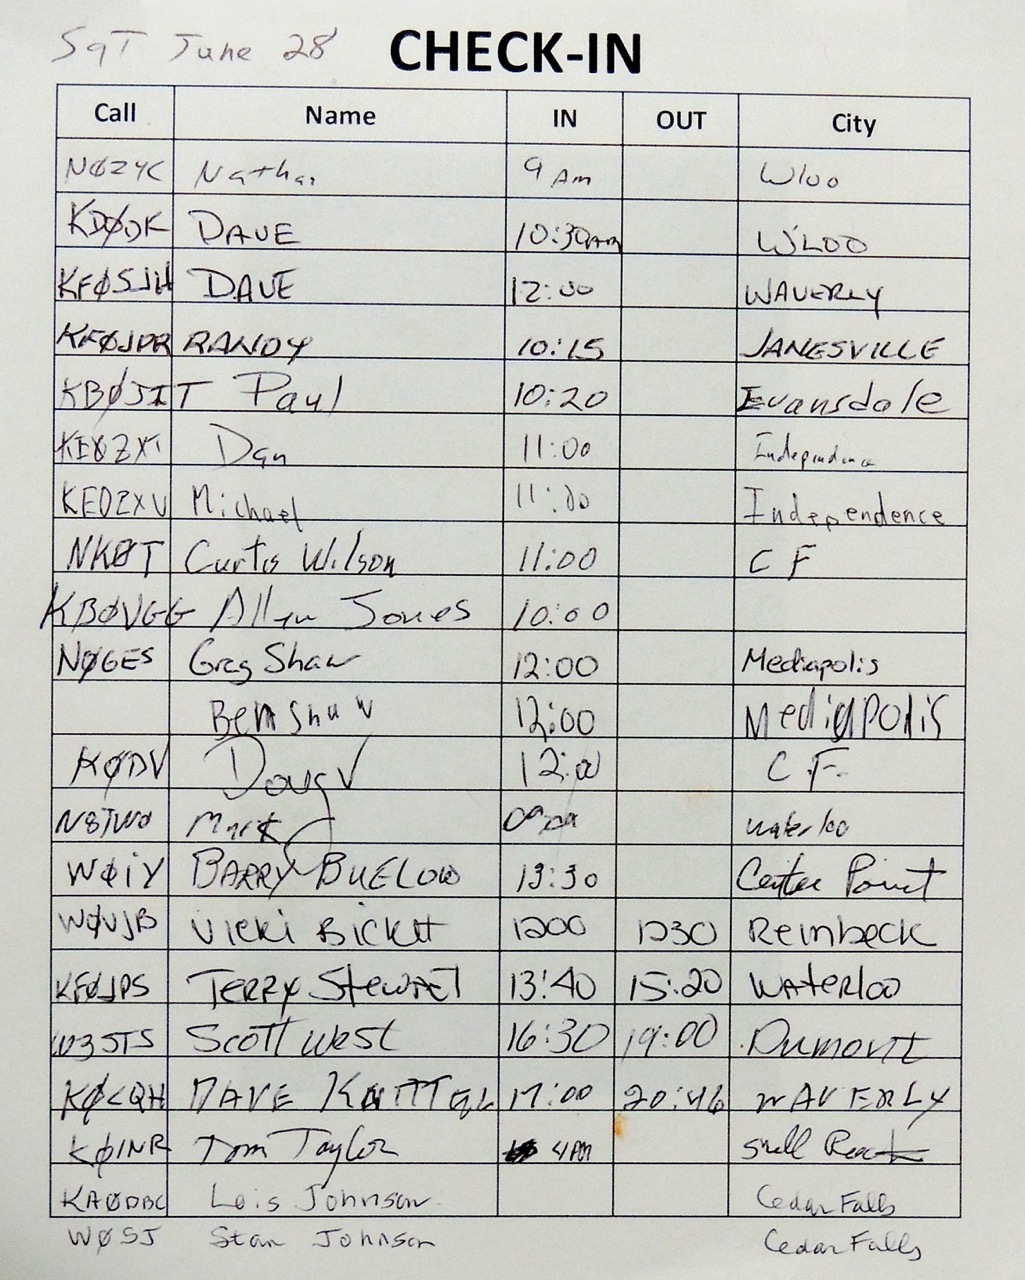 Sat June 28 CHECK-IN
Call Name IN OUT City
NØZYC Nathan 9 Am Wloo
KDØDK DAVE 10:30am WLOO
KFØSJH DAVE 12:00 WAVERLY
KFØJPR RANDY 10:15 JANESVILLE
KBØJIT Paul 10:20 Evansdale
Dan 11:00 Independence
KEØZXV Michael 11:00 Independence
NKØT Curtis Wilson 11:00 CF
KBØVGG Allen Jones 10:00
NØGES Greg Shaw 12:00 Mediapolis
Ben Shaw 12:00 Mediapolis
KØDV Doug V 12:00 C.F.
Mark waterloo
WØiY BARRY BUELOW 13:30 Center Point
WØVJB Vicki Bickett 1200 1230 Reinbeck
KFØJPS TERRY Stewart 13:40 15:20 Waterloo
Scott West 16:30 19:00 Dumont
KØCQH DAVE KNITTEL 17:00 20:46 WAVERLY
KØINR Tom Taylor 4PM Shell Rock
KAØDBC Lois Johnson Cedar Falls
WØSJ Stan Johnson Cedar Falls